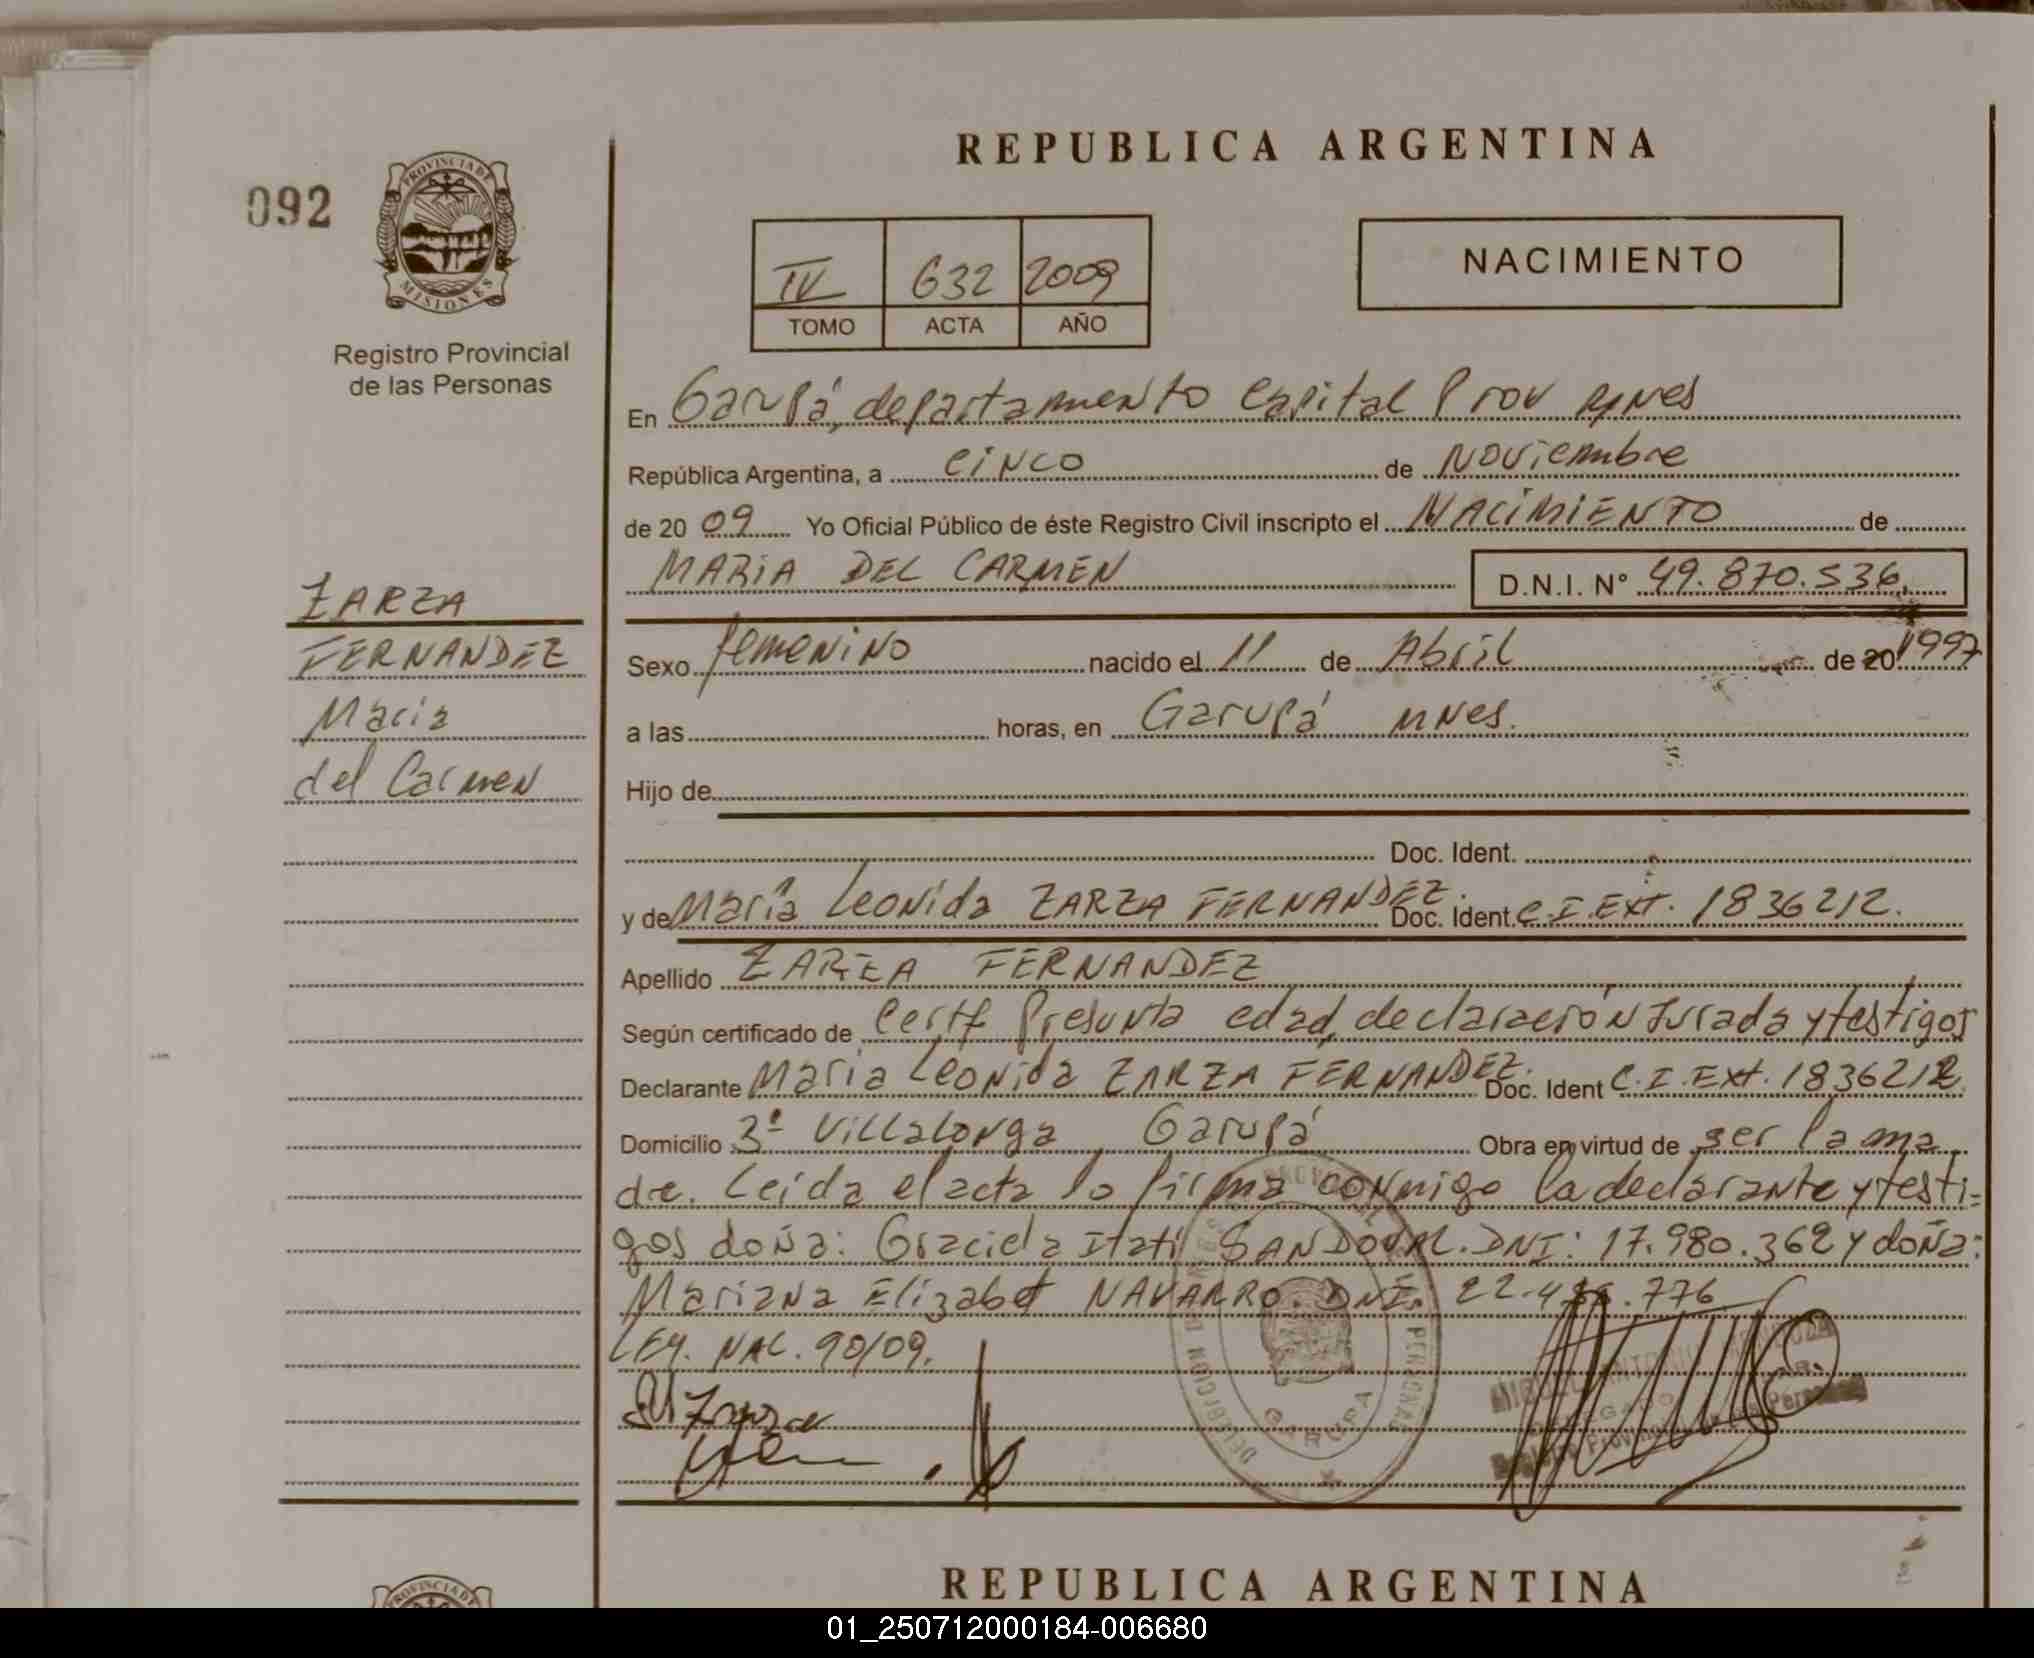 REPUBLICA ARGENTINA
092
PROVINCIA DE
MISIONES
Registro Provincial
de las Personas
IV 632 2009
TOMO ACTA AÑO
NACIMIENTO
ZARZA
FERNANDEZ
Maria
del Carmen
En Garupá, departamento Capital Prov Mnes
República Argentina, a cinco de Noviembre
de 20 09 Yo Oficial Público de éste Registro Civil inscripto el NACIMIENTO de
MARIA DEL CARMEN D.N.I. N° 49.870.536.
Sexo femenino nacido el 11 de Abril de 20 1997
a las horas, en Garupá Mnes.
Hijo de
Doc. Ident.
y de María Leonida ZARZA FERNANDEZ. Doc. Ident. C.I.Ext. 1836212.
Apellido ZARZA FERNANDEZ
Según certificado de Certf Presunta edad, declaración Jurada y testigos
Declarante Maria Leonida ZARZA FERNANDEZ. Doc. Ident C.I.Ext. 1836212
Domicilio 3ª Villalonga, Garupá Obra en virtud de ser la ma
dre. Leida el acta la firma conmigo la declarante y testi=
gos doña: Graciela Itati SANDOVAL. DNI: 17.980.362 y doña:
Mariana Elizabet NAVARRO. DNI. 22. .776
LEY. NAL. 90/09.
Zarza
GARUPA
PERSONAS
DELEGADO
REPUBLICA ARGENTINA
PROVINCIA DE
01_250712000184-006680